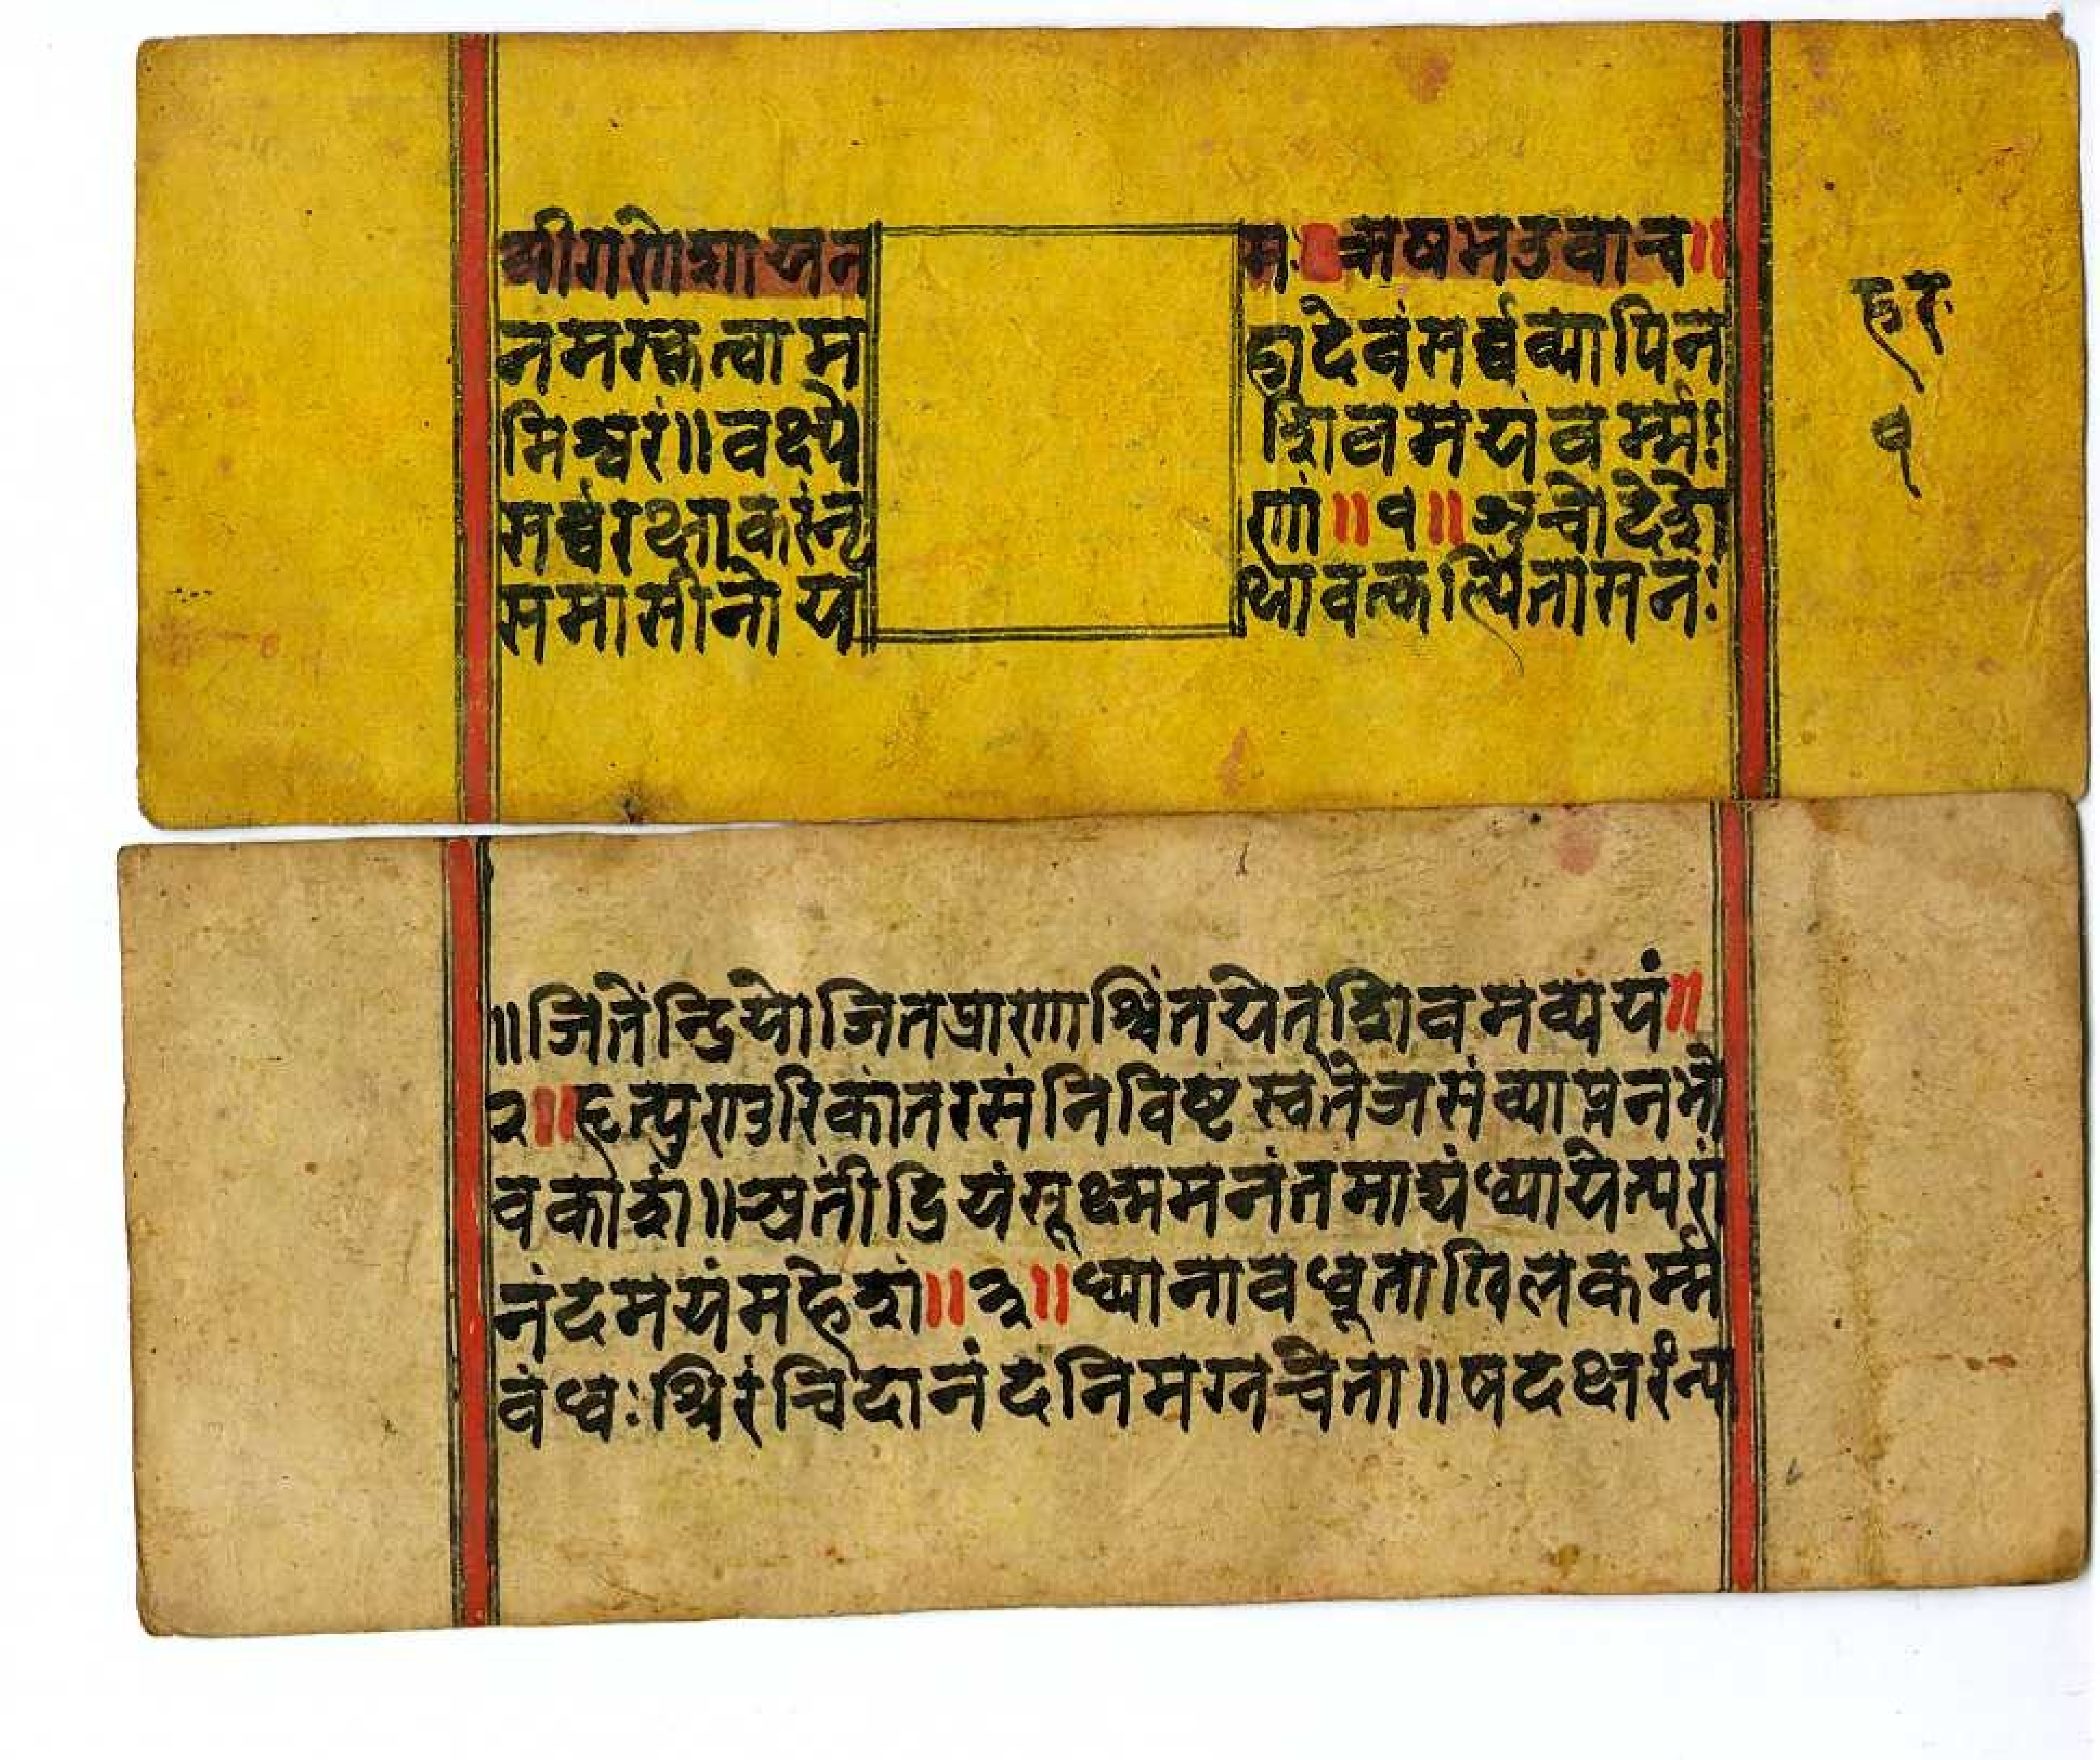 श्रीगणेशायन मः ऋषभउवाच॥
नमस्कृत्वाम हादेवंसर्व्वव्यापिन
मिश्वरं॥वक्ष्ये शिवमयंवर्म्मः
सर्व्वरक्षाकरंनृ णां॥१॥शुचौदेशे
समासीनोय थावत्कल्पितासनः
हर
१
॥जितेंन्द्रियोजितप्राणश्चिंतयेत्शिवमव्ययं॥
२॥हृत्पुण्डरिकांतरसंनिविष्टंस्वतेजसंव्याप्तनभो
वकाशं॥अतींद्रियंसूक्ष्ममनंतमाद्यंध्यायेत्परा
नंदमयंमहेशं॥३॥ध्यानावधूताखिलकर्म्म
वंध्वःश्चिरंचिदानंदनिमग्नचेता॥षदक्षरंन्य